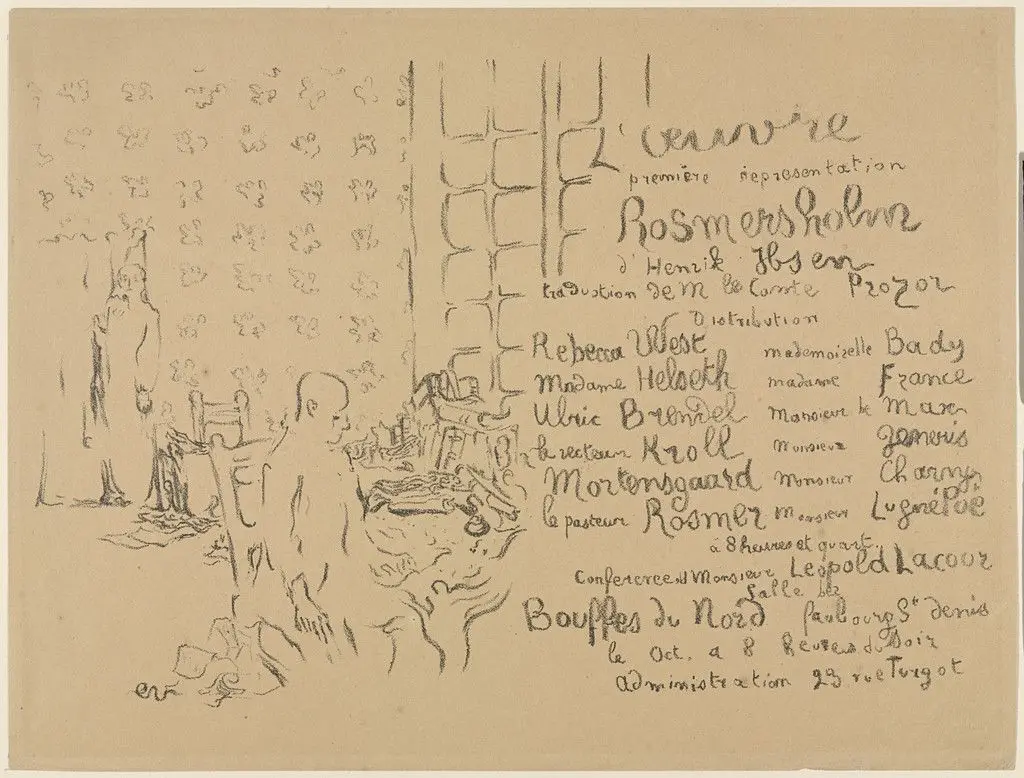 L'œuvre
première représentation
Rosmersholm
d'Henrik Ibsen
traduction de M le Comte Prozor
Distribution
Rebecca West mademoiselle Bady
Madame Helseth madame France
Ulric Brendel Monsieur de Max
le recteur Kroll Monsieur
Mortensgaard Monsieur Charny
le pasteur Rosmer Monsieur Lugné Poë
à 8 heures et quart
Conference d Monsieur Leopold Lacour
Salle des
Bouffes du Nord faubourg St denis
le Oct. a 8 heures du Soir
administration 23 rue Turgot
ev